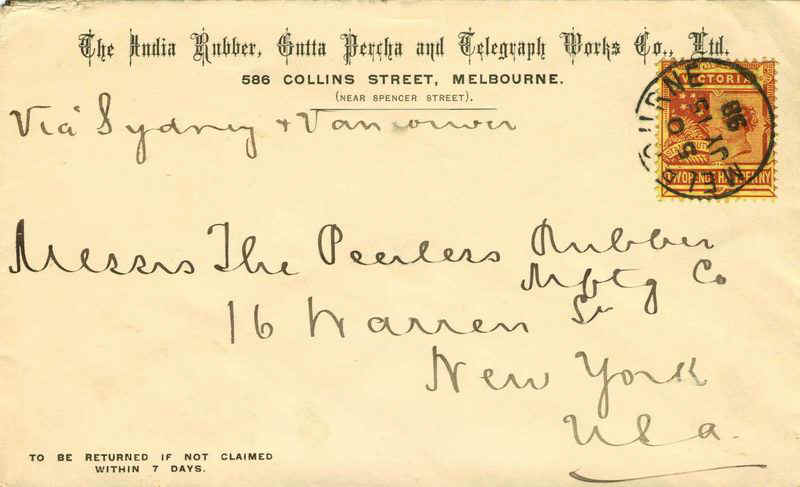 The India Rubber, Gutta Percha and Telegraph Works Co., Ltd.
586 COLLINS STREET, MELBOURNE.
(NEAR SPENCER STREET).
Via Sydney & Vancouver
VICTORIA
TWOPENCE HALFPENNY
MELBOURNE
98
Messrs The Peerless Rubber
Mfg Co
16 Warren St
New York
USa.
TO BE RETURNED IF NOT CLAIMED
WITHIN 7 DAYS.